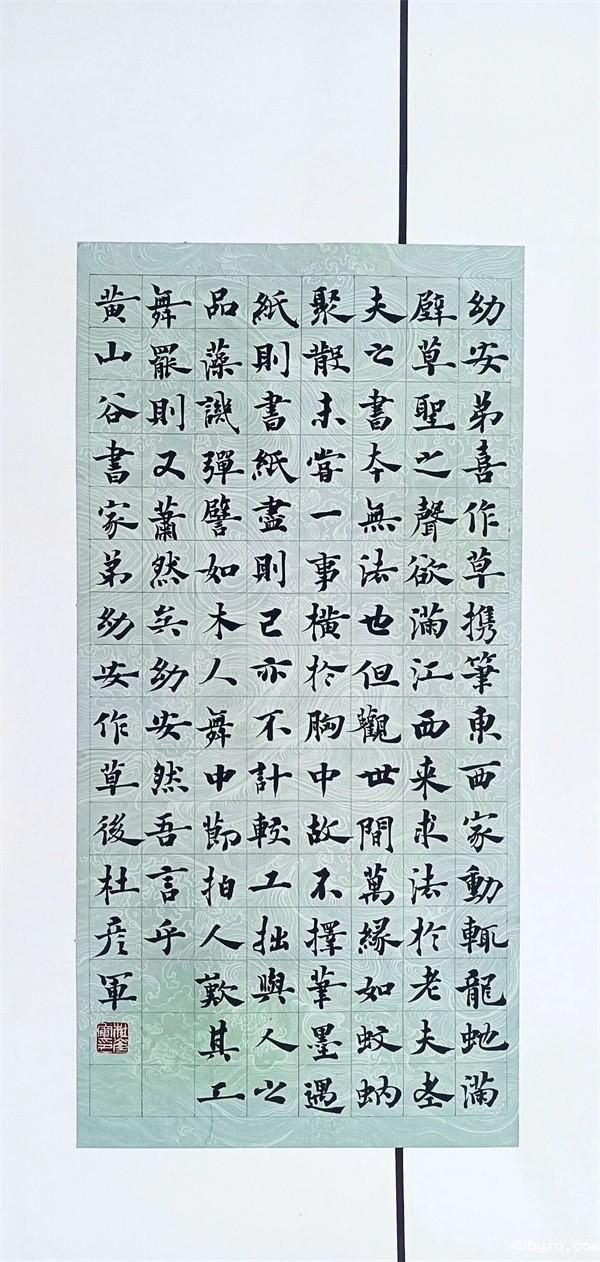 幼安弟喜作草携筆東西家動輒龍虵滿
壁草聖之聲欲滿江西来求法於老夫老
夫之書本無法也但觀世間萬緣如蚊蚋
聚散未嘗一事橫於胸中故不擇筆墨遇
紙則書紙盡則已亦不計較工拙與人之
品藻譏彈譬如木人舞中節拍人歎其工
舞罷則又蕭然矣幼安然吾言乎
黄山谷書家弟幼安作草後杜彦軍
xbbyzq.com